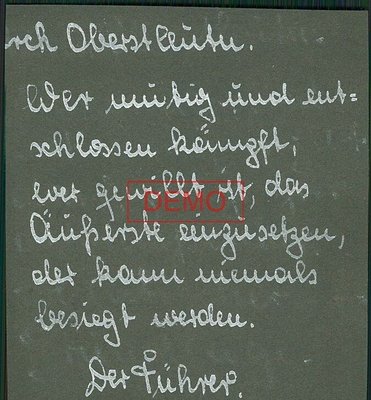 rch Oberstleutn.
Wer mutig und ent=
schlossen kämpft,
wer gewillt ist, das
DEMO
Äußerste einzusetzen,
der kann niemals
besiegt werden.
Der Führer.